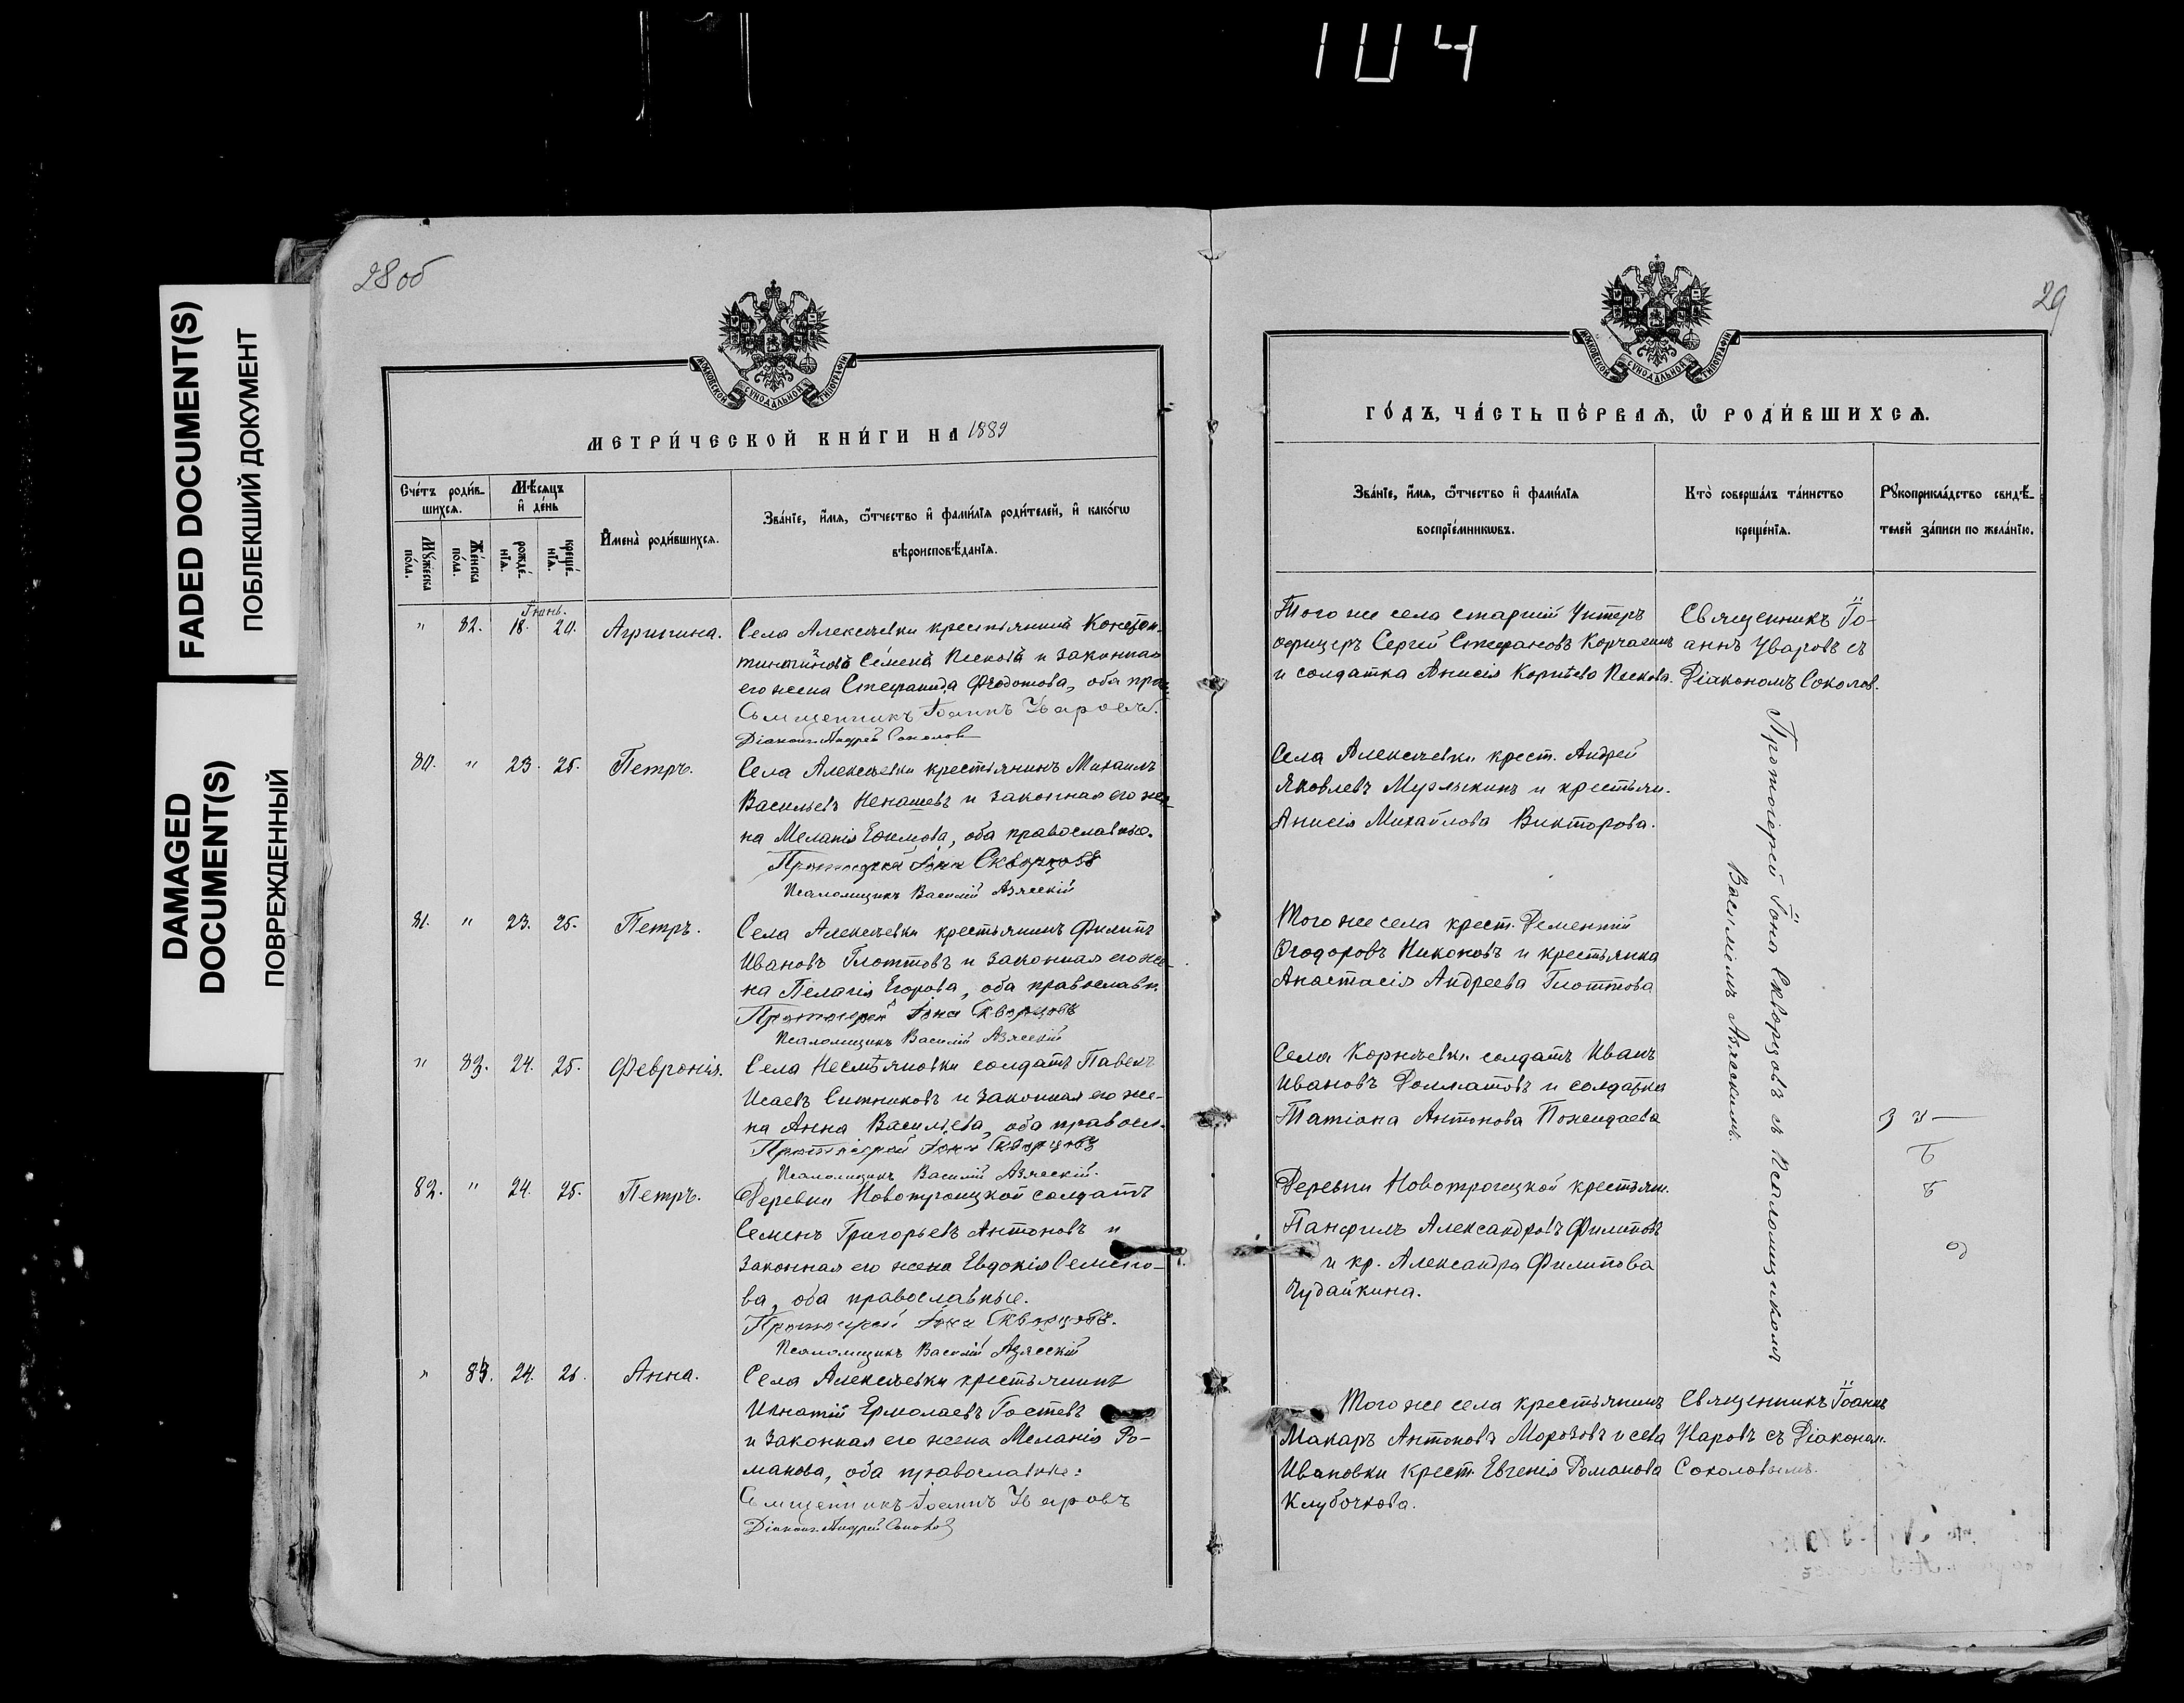 104
FADED DOCUMENT(S)
ПОБЛЕКШИЙ ДОКУМЕНТ
DAMAGED
DOCUMENT(S)
ПОВРЕЖДЕННЫЙ
28 об
МОСКОВСКОЙ СѴНОДАЛЬНОЙ ТИПОГРАФІИ
МЕТРИ́ЧЕСКОЙ КНИ́ГИ НА 1889
Сче́тъ роди́в-
шихся.
Мѣ́сяцъ
и҆ де́нь
Мꙋ́жеска
по́ла.
Же́нска
по́ла.
рожде́-
нїѧ.
креще́-
нїѧ.
И҆мена̀ роди́вшихсѧ.
Зва́нїе, и҆́мѧ, ѻ҆́тчество и҆ фами́лїѧ роди́телей, и҆ како́гѡ
вѣроисповѣ́данїѧ.
Іюнь.
" 82. 18. 20. Агрипина. Села Алексѣевки крестьянина Констан-
тиногинова Семена Пескова и законная
его жена Стефанида Ѳедотова, оба пра-
Священникъ Іоаннъ Уваровъ.
Діаконъ Андрей Соколовъ
80. " 23. 25. Петръ. Села Алексѣевки крестьянинъ Михаилъ
Васильевъ Ненашевъ и законная его же-
на Меланія Ефимова, оба православные.
Протоіерей Іона Скворцовъ
Псаломщикъ Василій Азясскій
81. " 23. 25. Петръ. Села Алексѣевки крестьянинъ Филиппъ
Ивановъ Глоттовъ и законная его же-
на Пелагія Егорова, оба православн.
Протоіерей Іона Скворцовъ
Псаломщикъ Василій Азясскій
" 83. 24. 25. Февронія. Села Несмѣяновки солдатъ Павелъ
Исаевъ Ситниковъ и законная его же-
на Анна Васильева, оба правосл.
Протоіерей Іона Скворцовъ
Псаломщикъ Василій Азясскій.
82. " 24. 25. Петръ. Деревни Новотроицкой солдатъ
Семенъ Григорьевъ Антоновъ и
законная его жена Евдокія Семено-
ва, оба православные.
Протоіерей Іона Скворцовъ.
Псаломщикъ Василій Азясскій
" 24. 26. Анна. Села Алексѣевки крестьянинъ
Игнатій Ермолаевъ Гостевъ
и законная его жена Меланія Ро-
манова, оба православные:
Священникъ Іоаннъ Уваровъ
Діаконъ Андрей Соколовъ
29
МОСКОВСКОЙ СѴНОДАЛЬНОЙ ТИПОГРАФІИ
ГО́ДЪ, ЧА́СТЬ ПЕ́РВАѦ, Ѡ҆ РОДИ́ВШИХСѦ.
Зва́нїе, и҆́мѧ, ѻ҆́тчество и҆ фами́лїѧ
воспрїе́мникѡвъ.
Кто̀ соверша́лъ та́инство
креще́нїѧ.
Рꙋкоприкла́дство свидѣ́-
телей за́писи по жела́нїю.
Того же села старшій Унтеръ
офицеръ Сергей Стефановъ Корчагинъ
и солдатка Анисія Корнѣева Пескова.
Священникъ Іо-
аннъ Уваровъ съ
Діакономъ Соколов.
Села Алексѣевки крест. Андрей
Яковлевъ Мурлыкинъ и крестьян.
Анисія Михайлова Викторова.
Того же села крест. Дементій
Ѳеодоровъ Никоновъ и крестьянка
Анастасія Андреева Глоттова
Села Корнѣевки солдатъ Иванъ
Ивановъ Долматовъ и солдатка
Татіана Антонова Пожидаева
Деревни Новотроицкой крестьян.
Панфилъ Александровъ Филиповъ
и кр. Александра Филипова
Чудайкина.
Протоіерей Іона Скворцовъ съ Псаломщикомъ
Василіемъ Азясскимъ.
Того же села крестьянинъ
Макаръ Антоновъ Морозовъ и села
Ивановки крест. Евгенія Романова
Клубочкова.
Священникъ Іоаннъ
Уваровъ съ Діакон.
Соколовымъ.